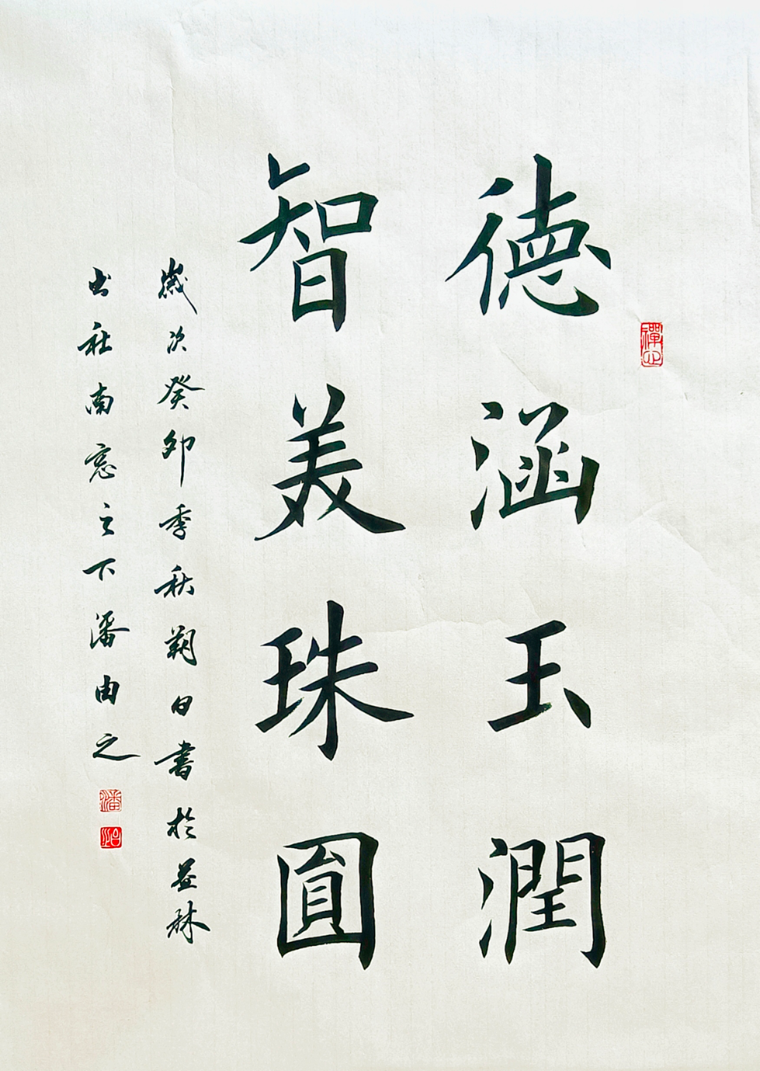 德涵玉潤
智美珠圓
歲次癸卯季秋朔日書於益林
出社南窓之下潘由之